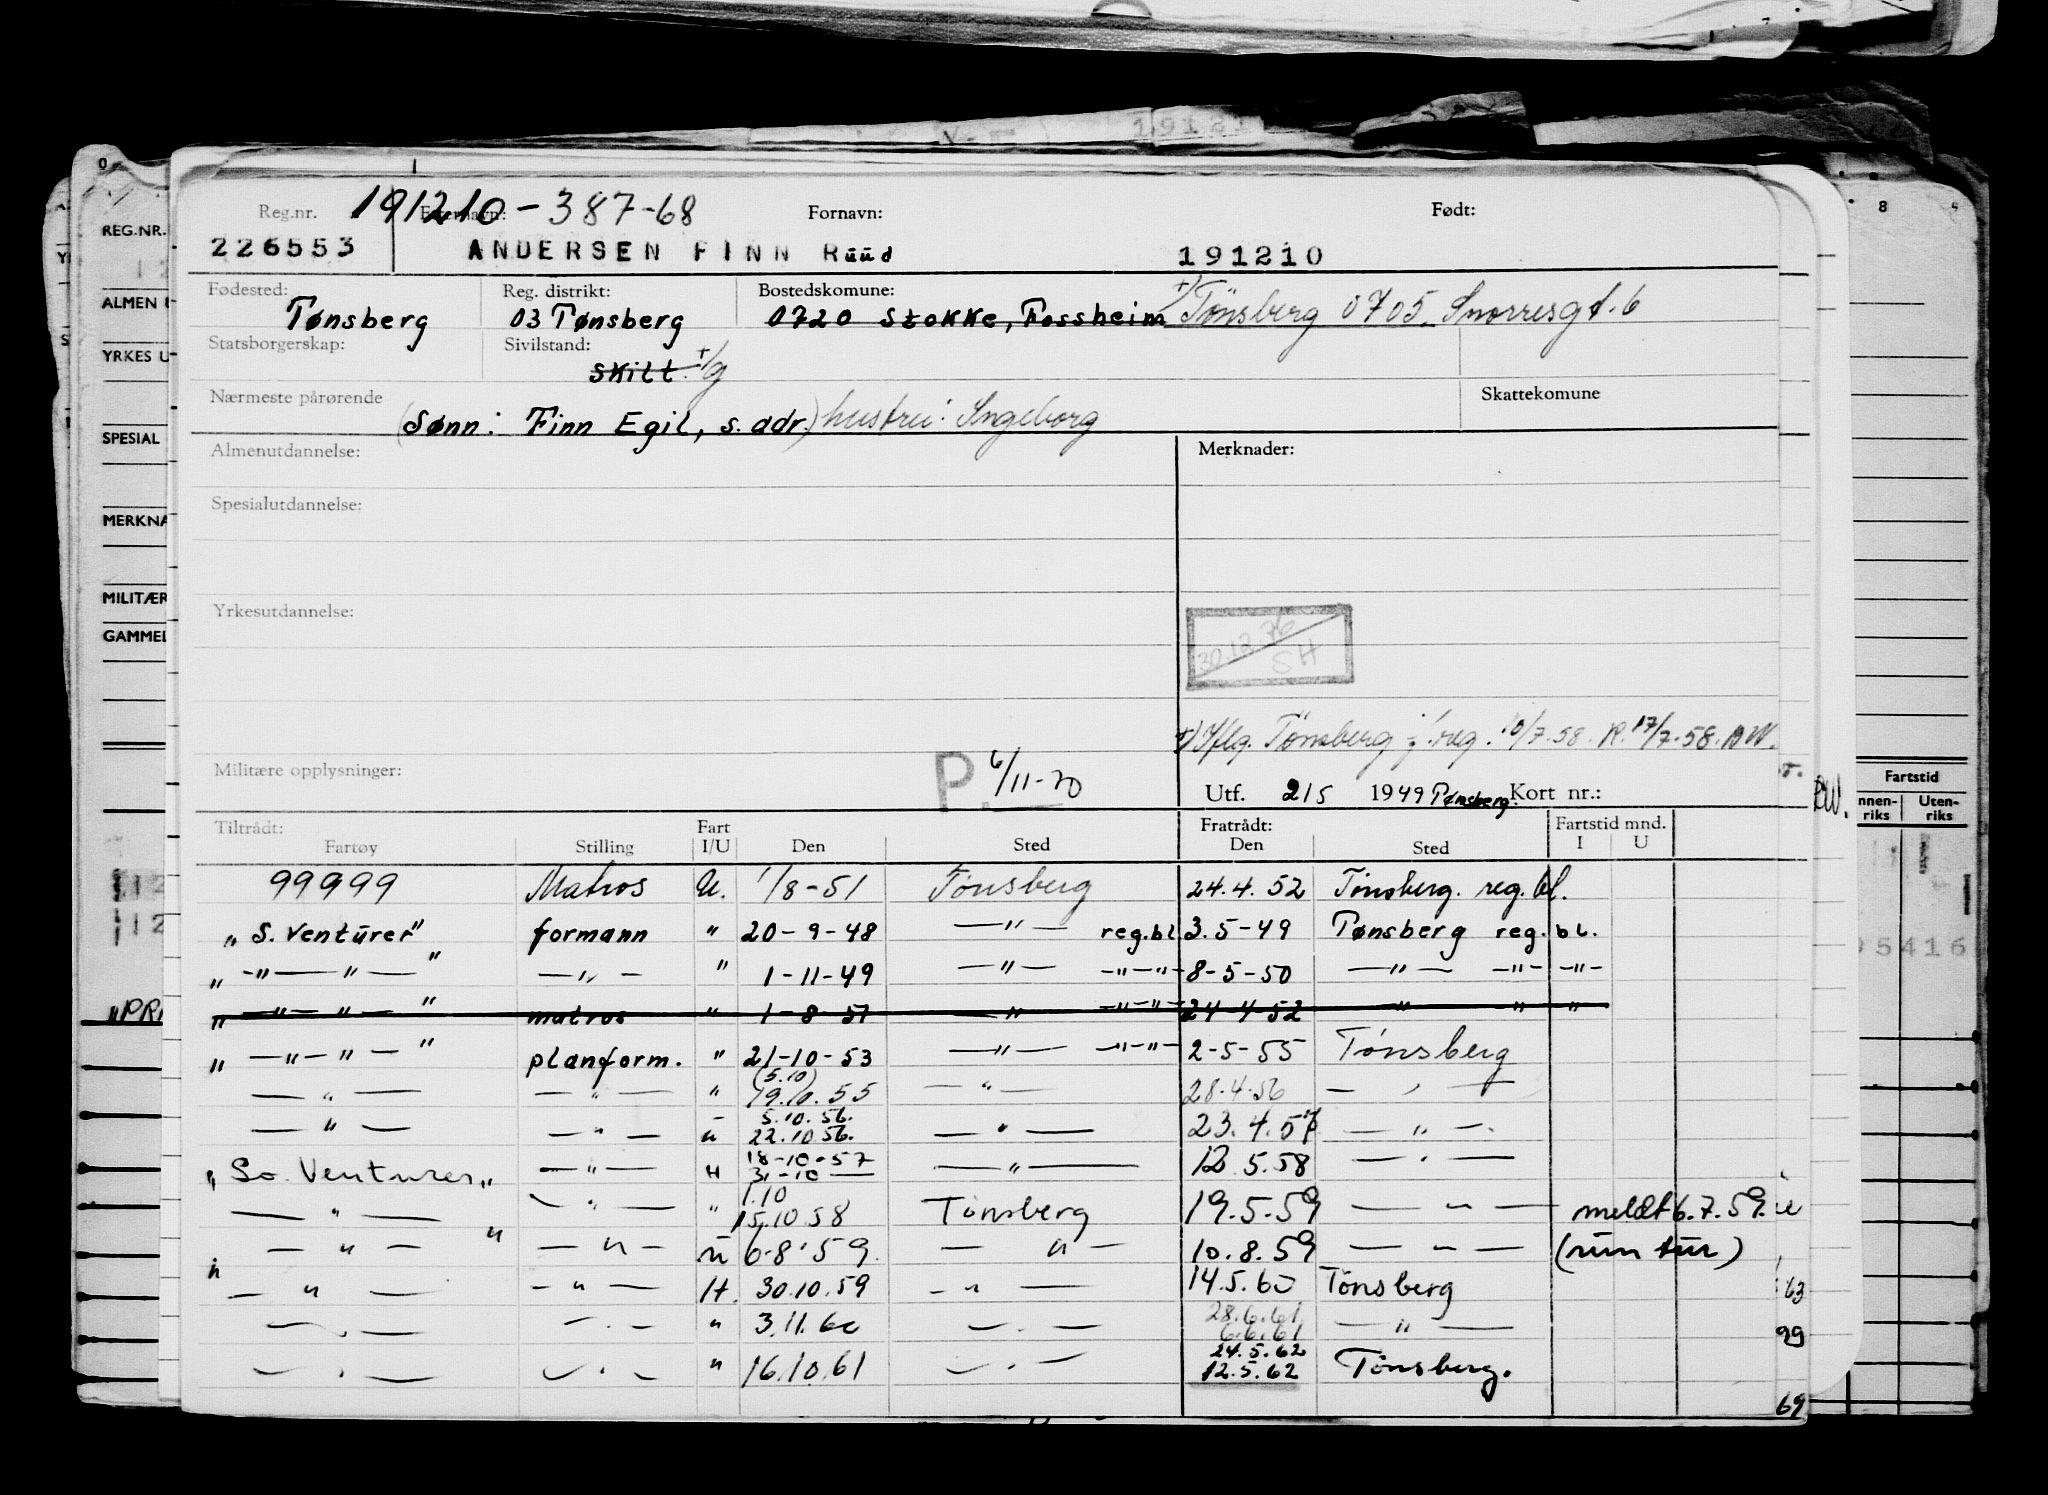 191210-387-68
Reg.nr. Fornavn: Født:
226553 ANDERSEN FINN Rúúd 191210
Fødested: Reg. distrikt: Bostedskomune:
Tønsberg 03 Tønsberg 0720 Stokke, Fossheim +) Tönsberg 0705 Snorresgt. 6
Statsborgerskap: Sivilstand:
skilt +/g
Nærmeste pårørende Skattekomune
(Sønn: Finn Egil, s. adr.) hustru: Ingeborg
Almenutdannelse: Merknader:
Spesialutdannelse:
Yrkesutdannelse:
30.12.76
SH
+) Iflg. Tönsberg j. reg. 10/7.58. R. 17/7-58. BW.
Militære opplysninger: P. 6/11-70
Utf. 2/5 1949 Tønsberg. Kort nr.:
Tiltrådt: Fart Fratrådt: Fartstid mnd.
Fartøy Stilling I/U Den Sted Den Sted I U
99999 Matros U. 1/8-51 Tönsberg 24.4.52 Tönsberg. reg. bl.
„S. Venturer" formann " 20-9-48 —"— reg.bl. 3.5-49 Tønsberg reg. bl.
„ —"— " —" —"— " 1-11-49 —"— —"—"— 8-5-50 —"— —"— —"—
„ —"— " —" matros " 1-8-51 —"— —"—"— 24-4-52 " " "
„ —"—"—" planform. " 21-10-53 —"— —"—"— 2-5-55 Tönsberg
—"— —"— " (5.10) 19.10.55 —"— 28.4.56 —"—
—"— —"— " 5.10.56. 22.10.56. —"— 23.4.57 —"—
„So. Venturer„ —"— H 18-10-57 31-10— —"— 12.5.58 —"—
—"— —"— " 1.10 15.10 58 Tönsberg 19.5.59 —"— meldt 6.7.59. u
—"— " —"— u 6-8-59. —"— 10.8.59 —"— (run tur)
" —"— —"— H. 30.10.59 —"— 14.5.60 Tönsberg
—"— —"— " 3.11.60 —"— 28.6.61 6.6.61 —"—
—"— —"— " 16.10.61 —"— 24.5.62 12.5.62 Tönsberg.
REG.NR.
ALMEN
YRKES U
SPESIAL
MERKNA
MILITÆR
GAMMEL
„PRI
8
Fartstid
Uten-
riks riks
BW.
5416
63
99
69